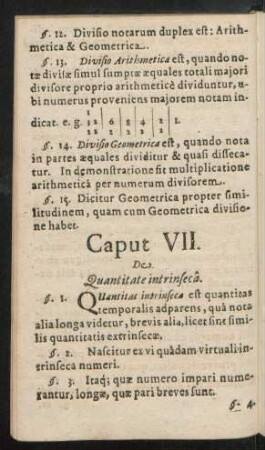 §. 12. Divisio notarum duplex est: Arith-
metica & Geometrica.
§. 13. Divisio Arithmetica est, quando no-
tæ divisæ simul sumptæ æquales totali majori
divisore proprio arithmeticè dividuntur, u-
bi numerus proveniens majorem notam in-
dicat. e. g.
§. 14. Divisio Geometrica est, quando nota
in partes æquales dividitur & quasi disseca-
tur. In demonstratione fit multiplicatione
arithmeticâ per numerum divisorem.
§. 15. Dicitur Geometrica propter simi-
litudinem, quam cum Geometrica divisio-
ne habet.
Caput VII.
De
Quantitate intrinsecâ.
§. 1. QUantitas intrinseca est quantitas
temporalis adparens, quâ nota
alia longa videtur, brevis alia, licet sint simi-
lis quantitatis extrinsecæ.
§. 2. Nascitur ex vi quâdam virtuali in-
trinseca numeri.
§. 3. Itaq; quæ numero impari nume-
rantur, longæ, quæ pari breves sunt.
§. 4.